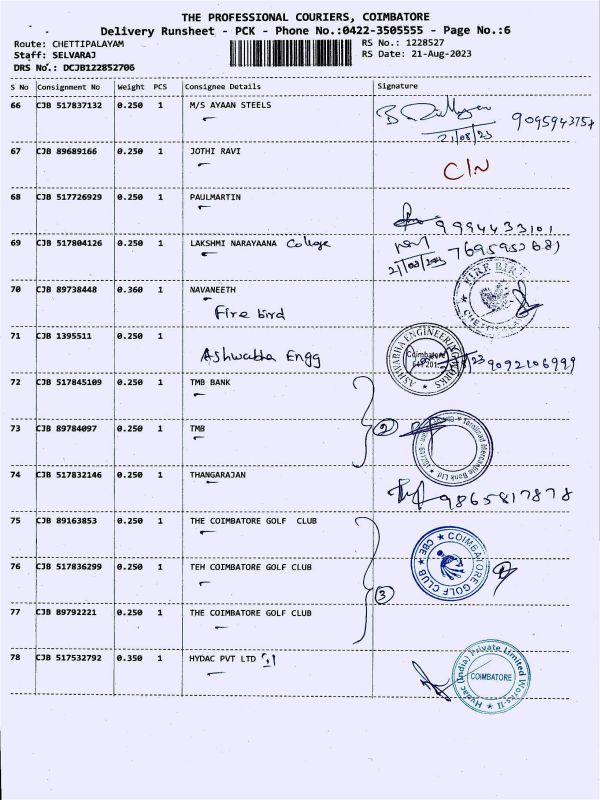 THE PROFESSIONAL COURIERS, COIMBATORE
Delivery Runsheet - PCK - Phone No.:0422-3505555 - Page No.:6
Route: CHETTIPALAYAM RS No.: 1228527
Staff: SELVARAJ RS Date: 21-Aug-2023
DRS No.: DCJB122852706
S No Consignment No Weight PCS Consignee Details Signature
66 CJB 517837132 0.250 1 M/S AYAAN STEELS
21/08/23
67 CJB 89689166 0.250 1 JOTHI RAVI C/N
68 CJB 517726929 0.250 1 PAULMARTIN
9994433101
69 CJB 517804126 0.250 1 LAKSHMI NARAYAANA College
70 CJB 89738448 0.360 1 NAVANEETH
Fire bird
FIRE BIRD
71 CJB 1395511 0.250 1
Ashwabha Engg
ASHWABHA ENGINEERING WORKS
Coimbatore
9092106999
72 CJB 517845109 0.250 1 TMB BANK
73 CJB 89784097 0.250 1 TMB
2
Tamilnad Mercantile Bank Ltd
74 CJB 517832146 0.250 1 THANGARAJAN
9865817878
75 CJB 89163853 0.250 1 THE COIMBATORE GOLF CLUB
76 CJB 517836299 0.250 1 TEH COIMBATORE GOLF CLUB
COIMBATORE GOLF CLUB ★ CBE ★
3
77 CJB 89792221 0.250 1 THE COIMBATORE GOLF CLUB
78 CJB 517532792 0.350 1 HYDAC PVT LTD
Hydac (India) Private Limited Works-II
COIMBATORE